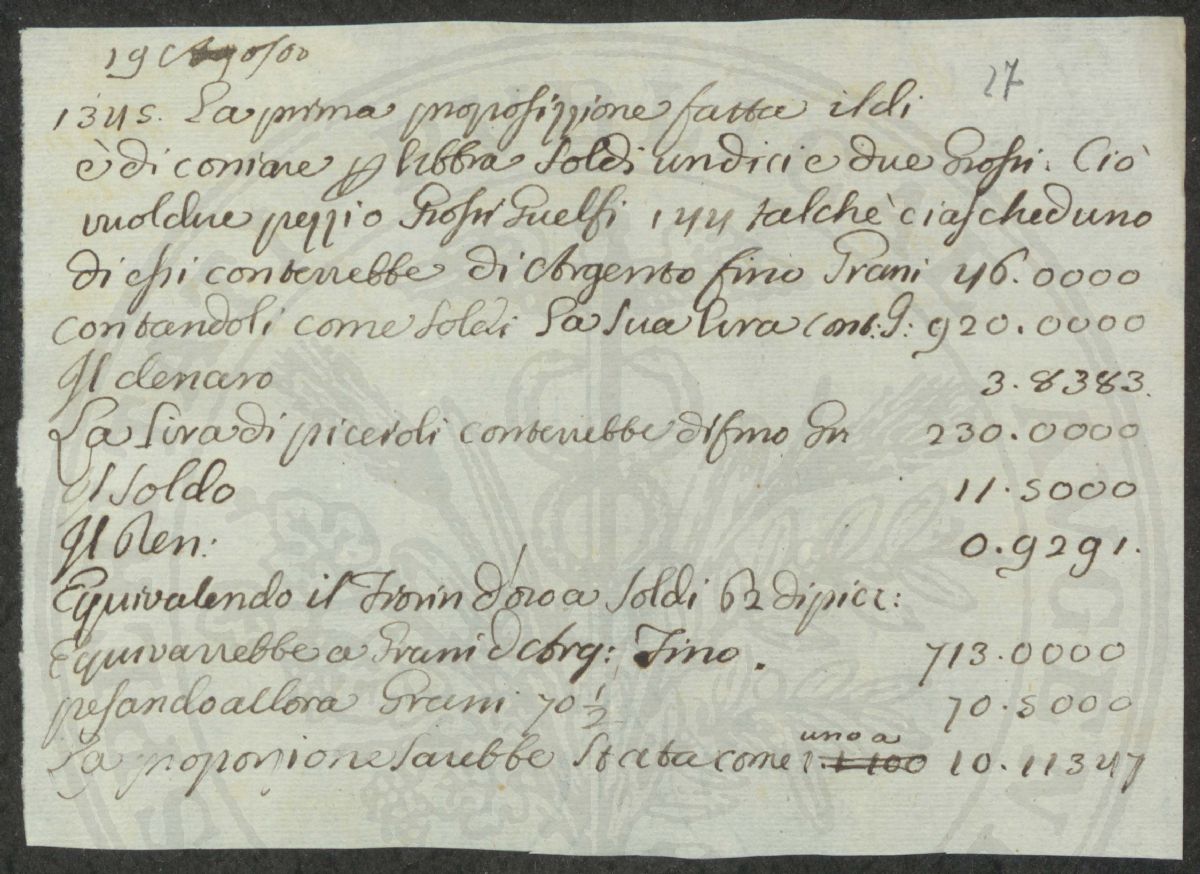 19 Agosto
27
1345. La prima proposizzione fatta il di
è di coniare p libbra Soldi undici e due Grossi. Ciò
vuol due pezzi o Grossi Guelfi 144 talchè ciascheduno
di essi conterrebbe di Argento fino Grani 46.0000
contandoli come Soldi La sua lira cont: G: 920.0000
Il denaro 3.8383.
La Lira di piccioli conterrebbe di fino Gr 230.0000
Il Soldo 11.5000
Il Den: 0.9291.
Equivalendo il Fiorin d'oro a Soldi 62 di picc:
Equivarrebbe a Grani d Arg: Fino. 713.0000
pesando allora Grani 70 1/2 70.5000
uno a
La proporzione sarebbe Stata come 10.11347